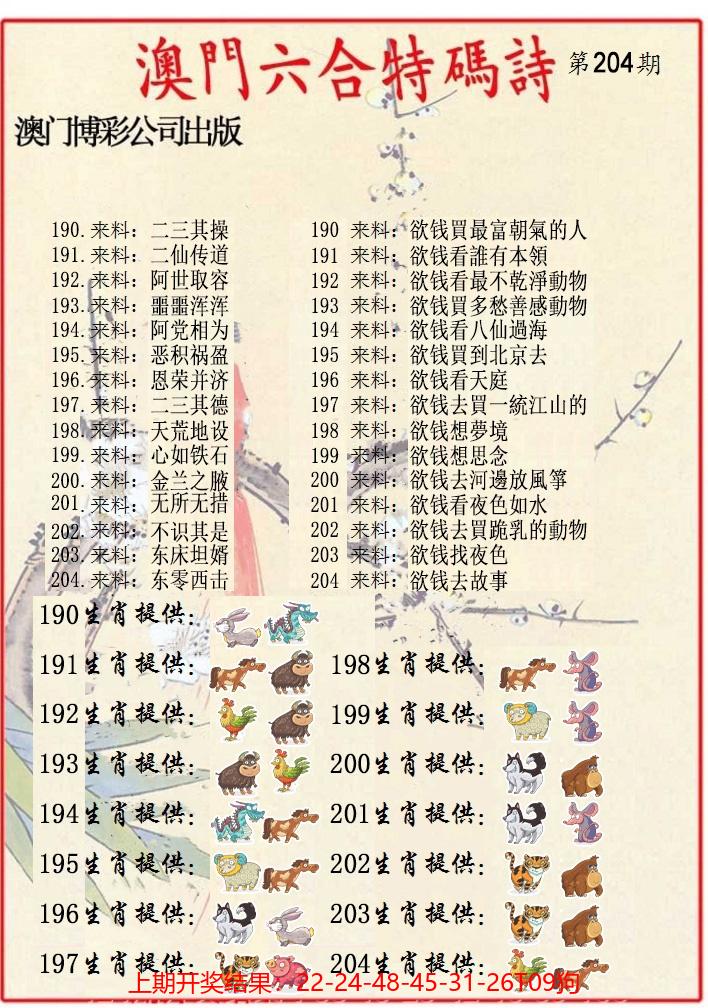 澳門六合特碼詩 第204期
澳门博彩公司出版
190.来料：二三其操
191.来料：二仙传道
192.来料：阿世取容
193.来料：噩噩浑浑
194.来料：阿党相为
195.来料：恶积祸盈
196.来料：恩荣并济
197.来料：二三其德
198.来料：天荒地设
199.来料：心如铁石
200.来料：金兰之腋
201.来料：无所无措
202.来料：不识其是
203.来料：东床坦婿
204.来料：东零西击
190 来料：欲钱買最富朝氣的人
191 来料：欲钱看誰有本領
192 来料：欲钱看最不乾淨動物
193 来料：欲钱買多愁善感動物
194 来料：欲钱看八仙過海
195 来料：欲钱買到北京去
196 来料：欲钱看天庭
197 来料：欲钱去買一統江山的
198 来料：欲钱想夢境
199 来料：欲钱想思念
200 来料：欲钱去河邊放風箏
201 来料：欲钱看夜色如水
202 来料：欲钱去買跪乳的動物
203 来料：欲钱找夜色
204 来料：欲钱去故事
190生肖提供：
191生肖提供：
192生肖提供：
193生肖提供：
194生肖提供：
195生肖提供：
196生肖提供：
197生肖提供：
198生肖提供：
199生肖提供：
200生肖提供：
201生肖提供：
202生肖提供：
203生肖提供：
204生肖提供：
上期开奖结果：22-24-48-45-31-26T09狗